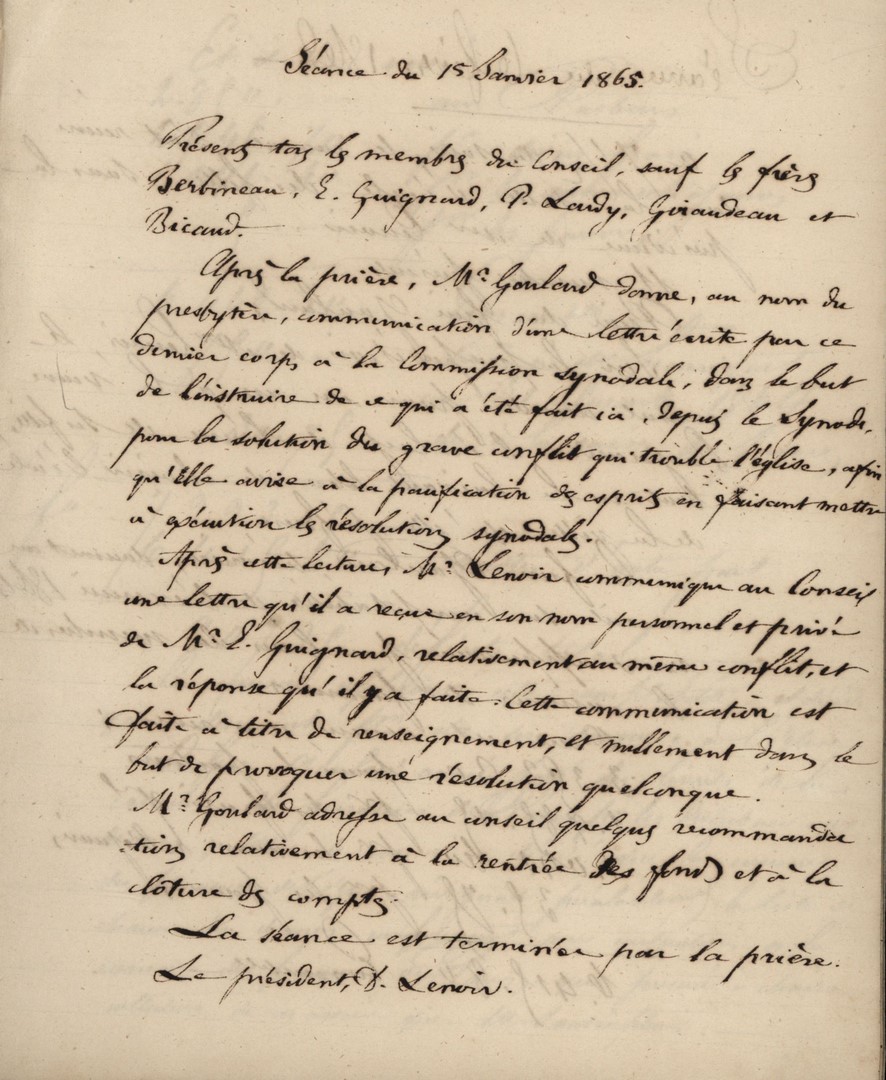 Séance du 15 Janvier 1865.
Présents tous les membres du Conseil, sauf les frères
Berbineau, E. Guignard, P. Lardy, Giraudeau et
Bicaud.
Après la prière, Mr Goulard donne, au nom du
presbytère, communication d'une lettre écrite par ce
dernier corps à la Commission synodale, dans le but
de l'instruire de ce qui a été fait ici, depuis le Synode,
pour la solution du grave conflit qui trouble l'église, afin
qu'Elle avise à la pacification des esprits en faisant mettre
à exécution les résolutions synodales.
Après cette lecture, Mr Lenoir communique au Conseil
une lettre qu'il a reçue en son nom personnel et privé
de Mr E. Guignard, relativement au même conflit, et
la réponse qu'il y a faite. Cette communication est
faite à titre de renseignement, et nullement dans le
but de provoquer une résolution quelconque.
Mr Goulard adresse au conseil quelques recommanda
-tions relativement à la rentrée des fonds et à la
clôture des comptes.
La séance est terminée par la prière.
Le président, D. Lenoir.